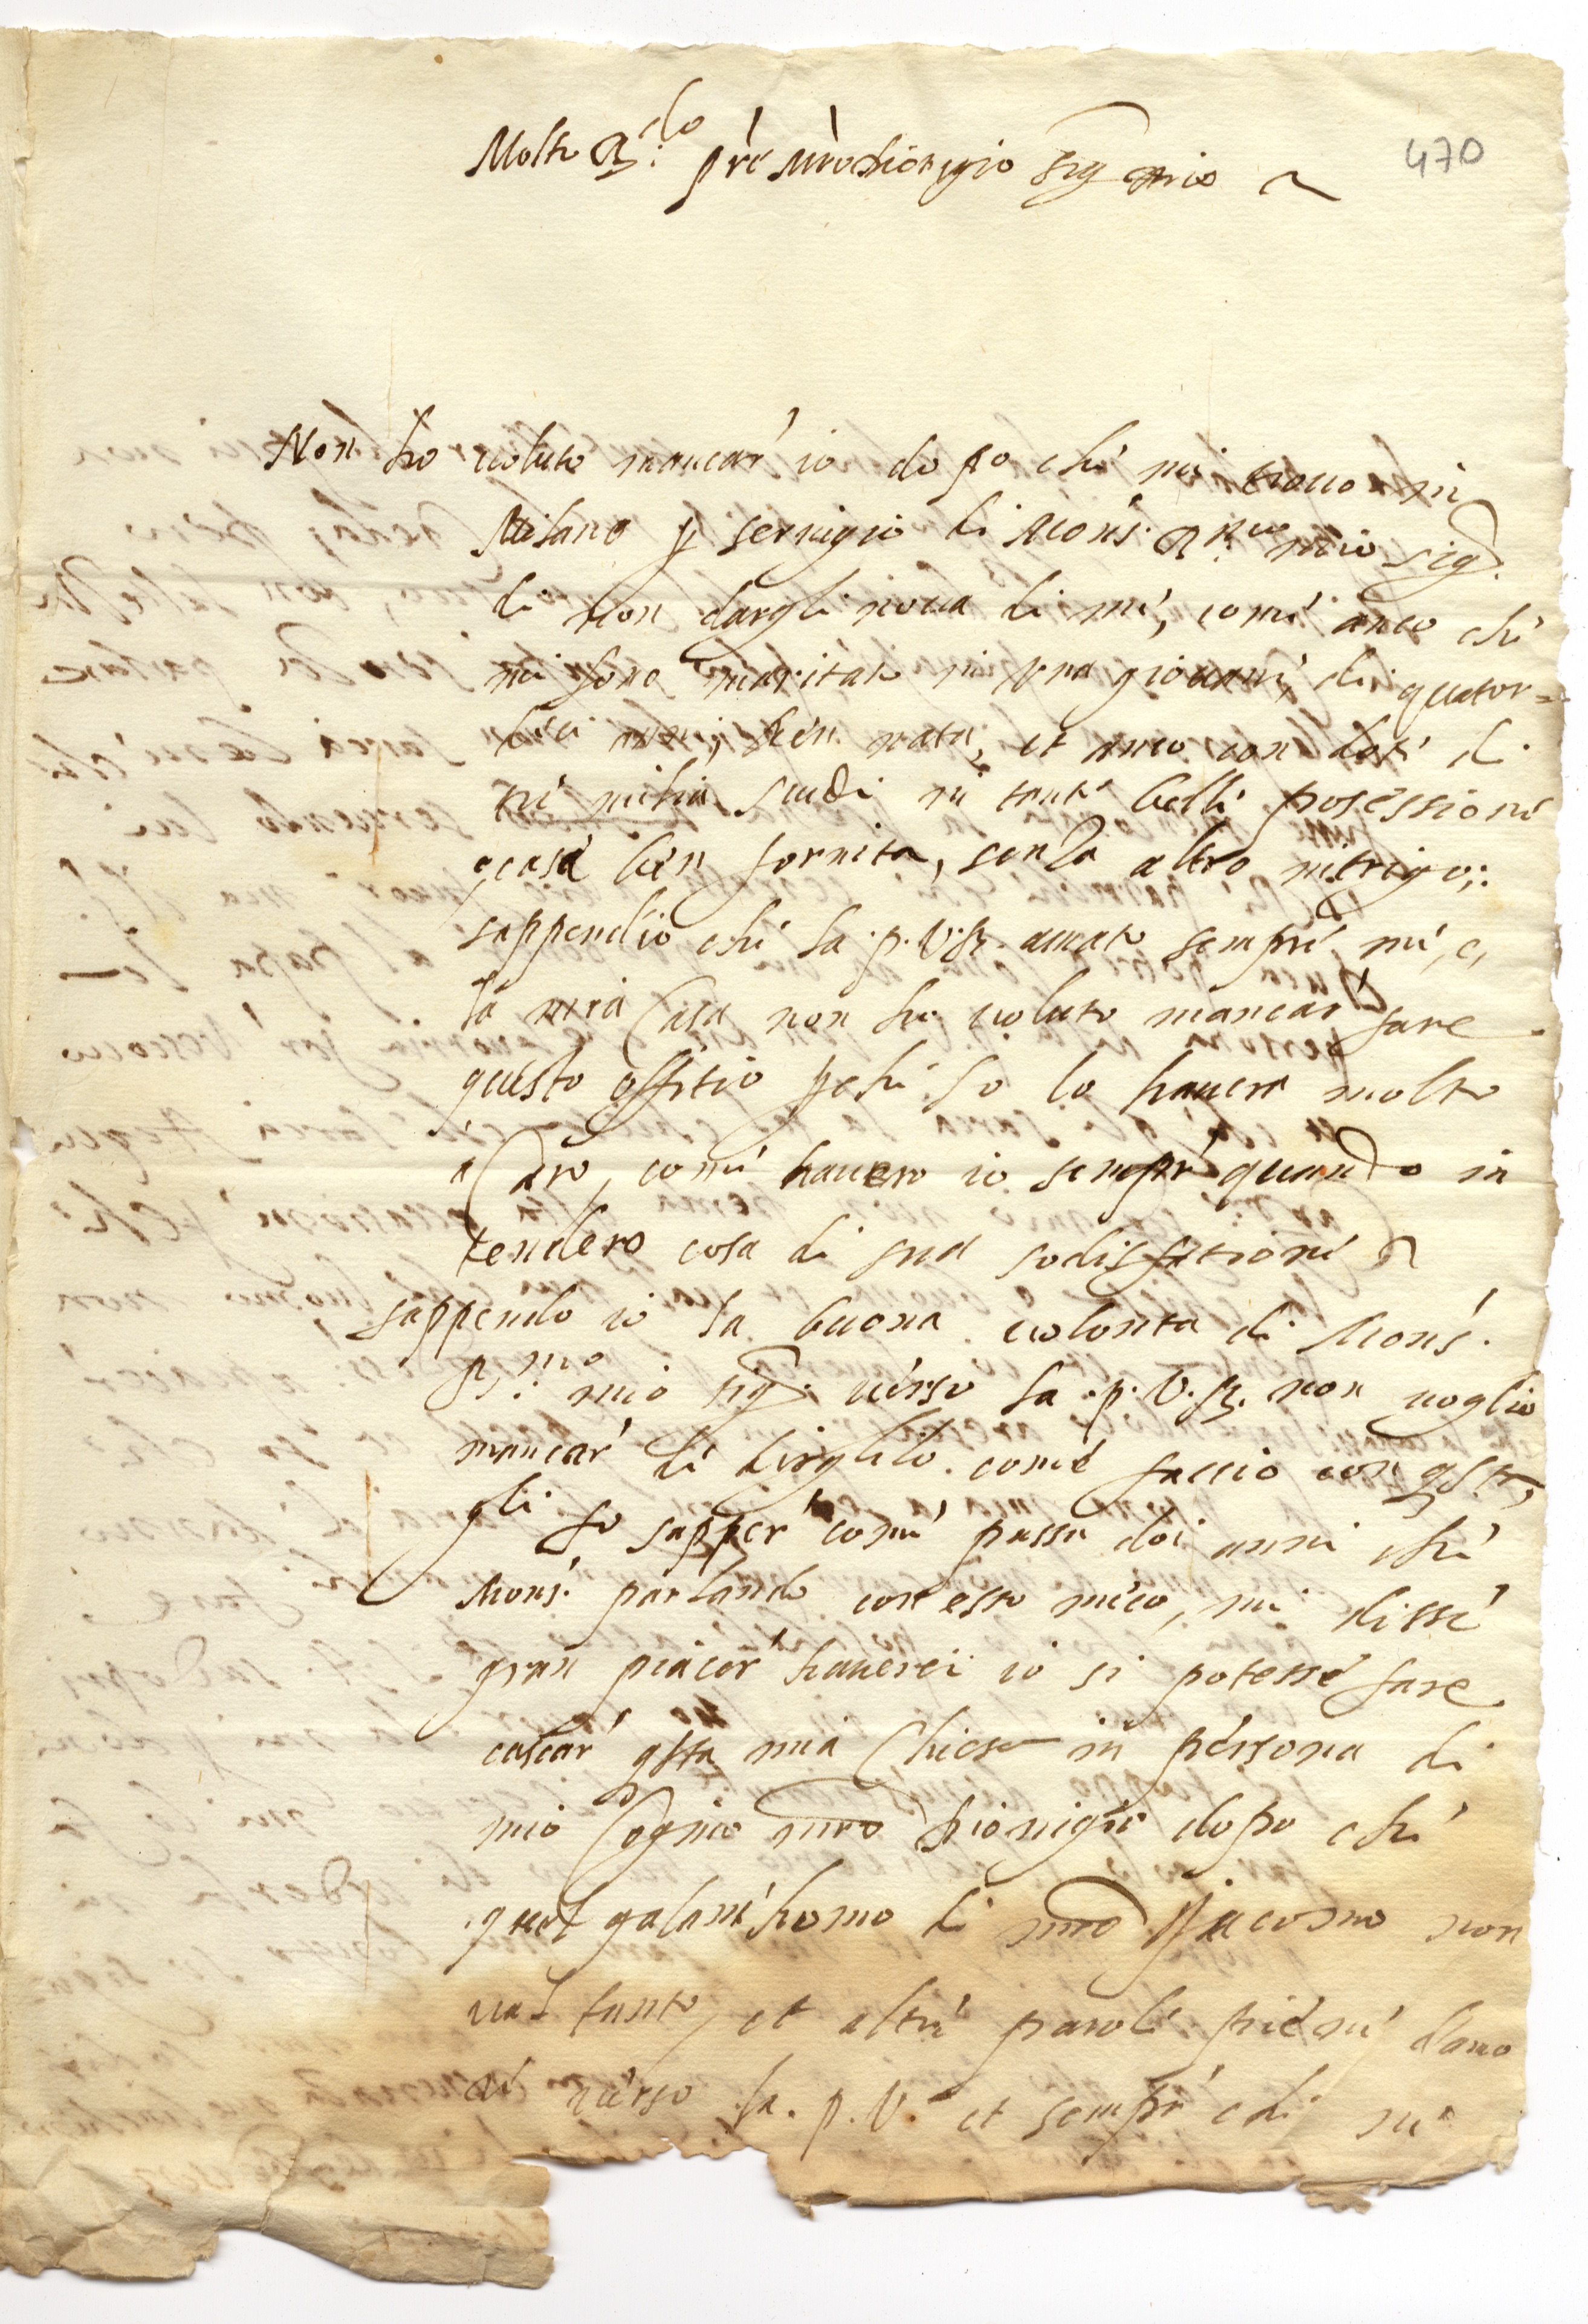 470
Molto R.do pre mro Dionigio sig mio
Non ho voluto mancar io dopo che mi trovo in
Milano p servigio di Mons. R.mo mio sig.
di non dargli nova di me, come anco che
mi sono maritato in una giovane, di quator=
dici anni, ben nata, et anco con dote di
tre milia scudi in tante belle posessione
e casa ben fornita, senza altro intrigo;
sappendo io che la .p.V.R. amato sempre me, e,
la mia Casa non ho voluto mancar fare
questo offitio pche so lo havera molto
a Caro, come havero io sempre quando in
tendero cosa di sua sodisfatione
sappendo io la buona volonta di Mons.
R.mo mio sig. verso la .p.V.R. non voglio
mancar di dirglilo come faccio con qsta,
gli fo sapper come passa doi anni che
Mons. parlando con esso meco, mi disse
gran piacer haverei io si potesse fare
cascar qsta mia Chiesa in persona di
mio Cognio mro Dionigio dopo che
quel galant'homo di mro Jacomo non
val tanto, et altre parole piene d'amo
verso la .p.V. et sempre che